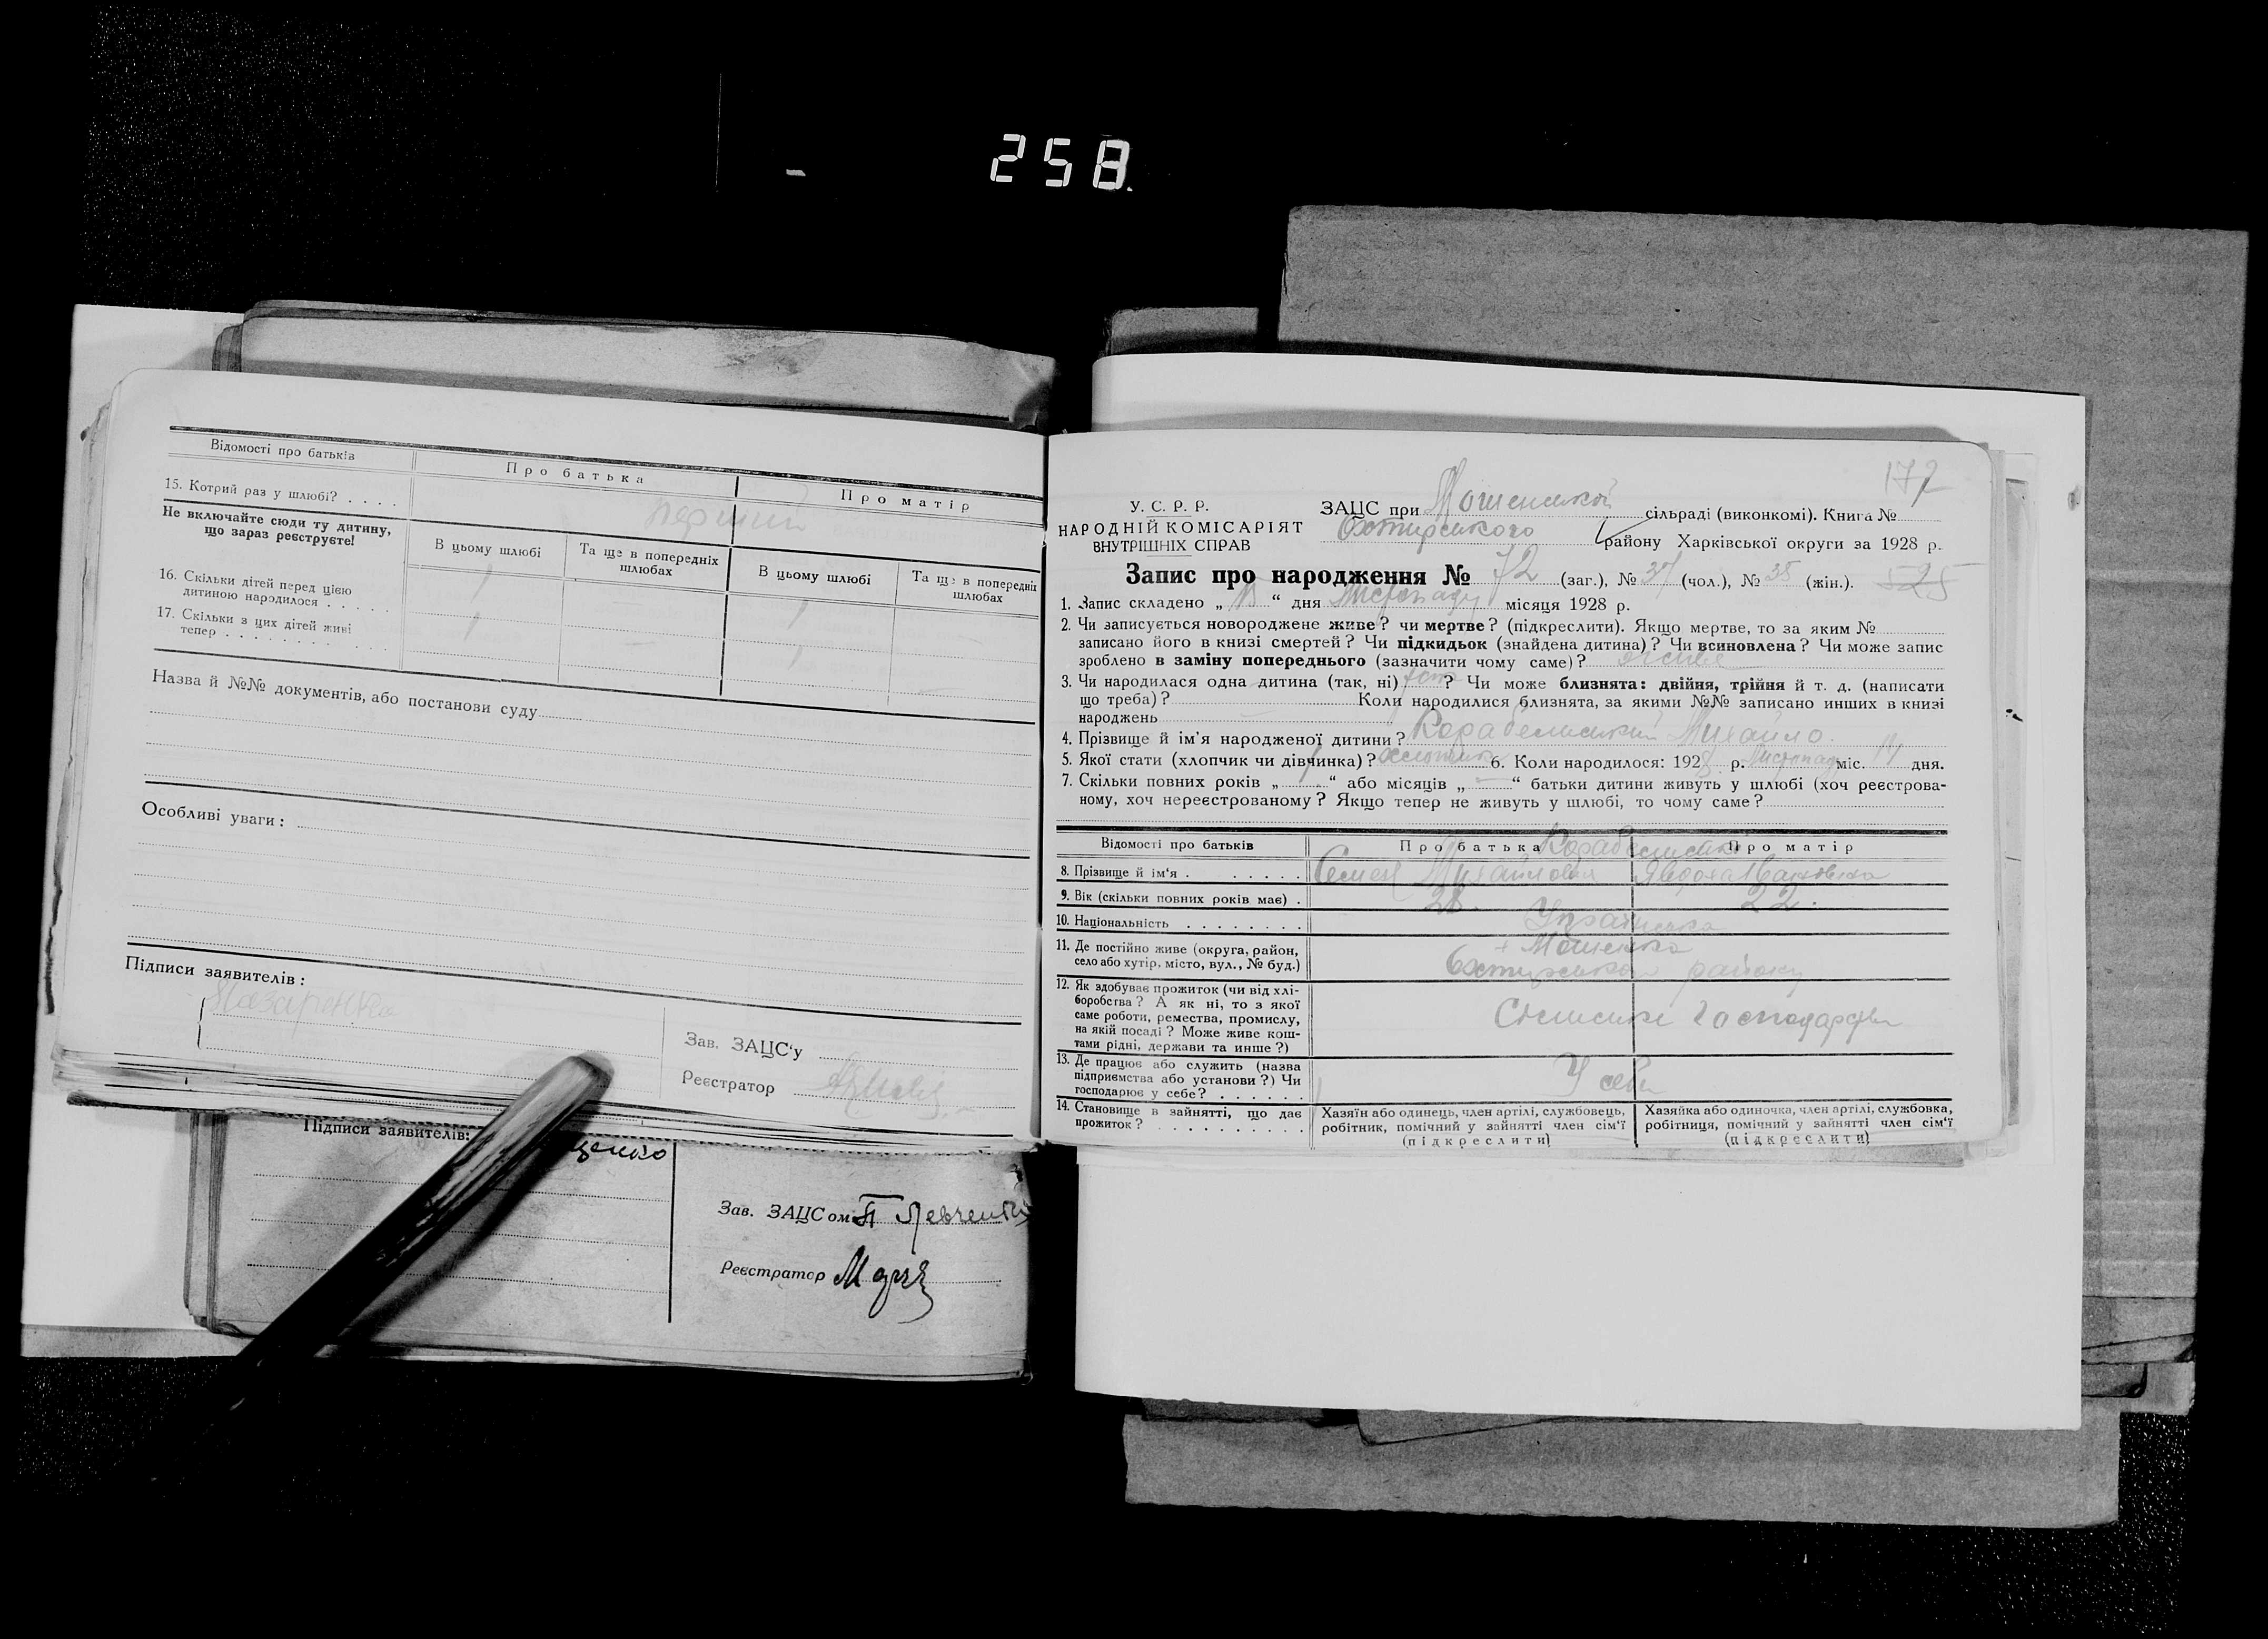 258.
Відомості про батьків
Про батька
Про матір
15. Котрий раз у шлюбі? . . . .
перший
Не включайте сюди ту дитину,
що зараз реєструєте!
В цьому шлюбі
Та ще в попередніх
шлюбах
В цьому шлюбі
Та ще в попередніх
шлюбах
16. Скільки дітей перед цією
дитиною народилося . . . . .
1
1
17. Скільки з цих дітей живі
тепер . . . . . . . . . . .
1
—
1
—
Назва й №№ документів, або постанови суду
Особливі уваги:
Підписи заявителів:
Назаренко
Зав. ЗАЦС'у
Реєстратор
Підписи заявителів:
щенко
Зав. ЗАЦСом П Левченко
Реєстратор
172
У. С. Р. Р.
НАРОДНІЙ КОМІСАРІЯТ
ВНУТРІШНІХ СПРАВ
ЗАЦС при Мошенській сільраді (виконкомі). Книга №
Охтирського району Харківської округи за 1928 р.
Запис про народження № 72 (заг.), № 37 (чол.), № 35 (жін.). 525
1. Запис складено „ “ дня Листопаду місяця 1928 р.
2. Чи записується новороджене живе? чи мертве? (підкреслити). Якщо мертве, то за яким №
записано його в книзі смертей? Чи підкидьок (знайдена дитина)? Чи всиновлена? Чи може запис
зроблено в заміну попереднього (зазначити чому саме)? живе
3. Чи народилася одна дитина (так, ні) ? Чи може близнята: двійня, трійня й т. д. (написати
що треба)? Коли народилися близнята, за якими №№ записано инших в книзі
народжень
4. Прізвище й ім'я народженої дитини? Корабельський Михайло.
5. Якої стати (хлопчик чи дівчинка)? хлопчик 6. Коли народилося: 1928 р. Листопаду міс. 11 дня.
7. Скільки повних років „ “ або місяців „ — “ батьки дитини живуть у шлюбі (хоч реєстрова-
ному, хоч нереєстрованому? Якщо тепер не живуть у шлюбі, то чому саме?
Відомості про батьків
Про батька
Про матір
8. Прізвище й ім'я . . . . . .
Семен Михайлович
9. Вік (скільки повних років має) .
28.
22.
10. Національність . . . . . . . .
Українська
11. Де постійно живе (округа, район,
село або хутір, місто, вул., № буд.)
Мошенка
Охтирського району
12. Як здобуває прожиток (чи від хлі-
боробства? А як ні, то з якої
саме роботи, ремества, промислу,
на якій посаді? Може живе кош-
тами рідні, держави та инше?)
Сільське господарство
13. Де працює або служить (назва
підприємства або установи?) Чи
господарює у себе? . . . . . .
У себе
14. Становище в зайнятті, що дає
прожиток? . . . . . . . . . .
Хазяїн або одинець, член артілі, службовець,
робітник, помічний у зайнятті член сім'ї
(підкреслити)
Хазяйка або одиночка, член артілі, службовка,
робітниця, помічний у зайнятті член сім'ї
(підкреслити)